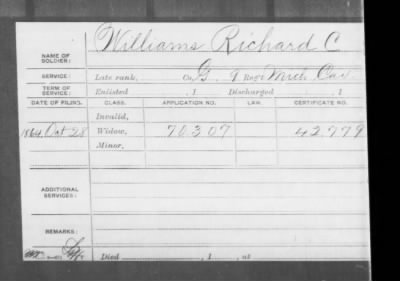 NAME OF SOLDIER: Williams Richard C
SERVICE: Late rank, Co. G. 9 Reg't Mich Cav.
TERM OF SERVICE: Enlisted , 1 Discharged , 1
DATE OF FILING. CLASS. APPLICATION NO. LAW. CERTIFICATE NO.
Invalid,
1864 Oct 28 Widow, 70307 42779
Minor,
ADDITIONAL SERVICES:
REMARKS:
Died , 1 , at